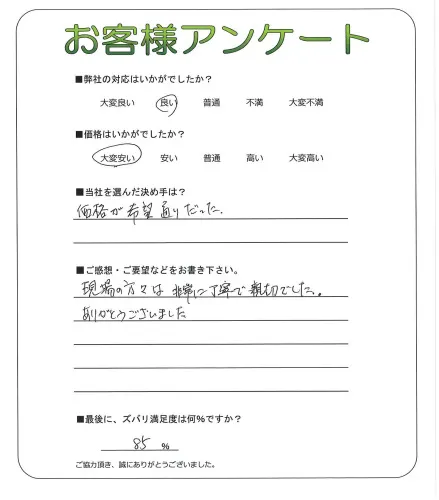 お客様アンケート
■弊社の対応はいかがでしたか？
大変良い 良い 普通 不満 大変不満
■価格はいかがでしたか？
大変安い 安い 普通 高い 大変高い
■当社を選んだ決め手は？
価格が希望通りだった.
■ご感想・ご要望などをお書き下さい。
現場の方々は 非常に丁寧で親切でした。
ありがとうございました
■最後に、ズバリ満足度は何%ですか？
85 %
ご協力頂き、誠にありがとうございました。